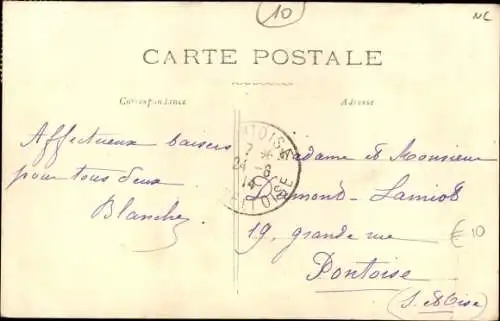 10
NL
CARTE POSTALE
Correspondance
Adresse
Affectueux baisers
pour tous deux
Blanche
PONTOISE
7 *
24 - 8
14
SEINE-ET-OISE
Madame et Monsieur
19, grande rue
Pontoise
(S. et Oise)
€10